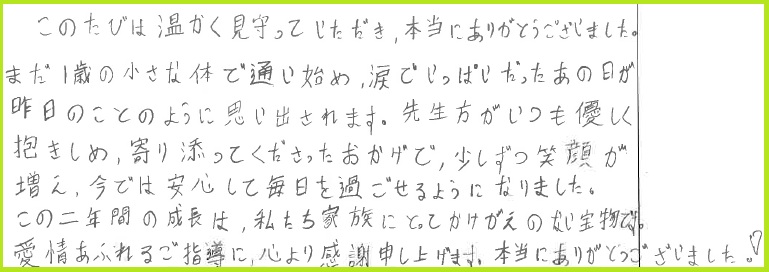 このたびは温かく見守っていただき,本当にありがとうございました。
まだ1歳の小さな体で通い始め,涙でいっぱいだったあの日が
昨日のことのように思い出されます。先生方がいつも優しく
抱きしめ,寄り添ってくださったおかげで,少しずつ笑顔が
増え,今では安心して毎日を過ごせるようになりました。
この二年間の成長は,私たち家族にとってかけがえのない宝物です。
愛情あふれるご指導に,心より感謝申し上げます。本当にありがとうございました。♡